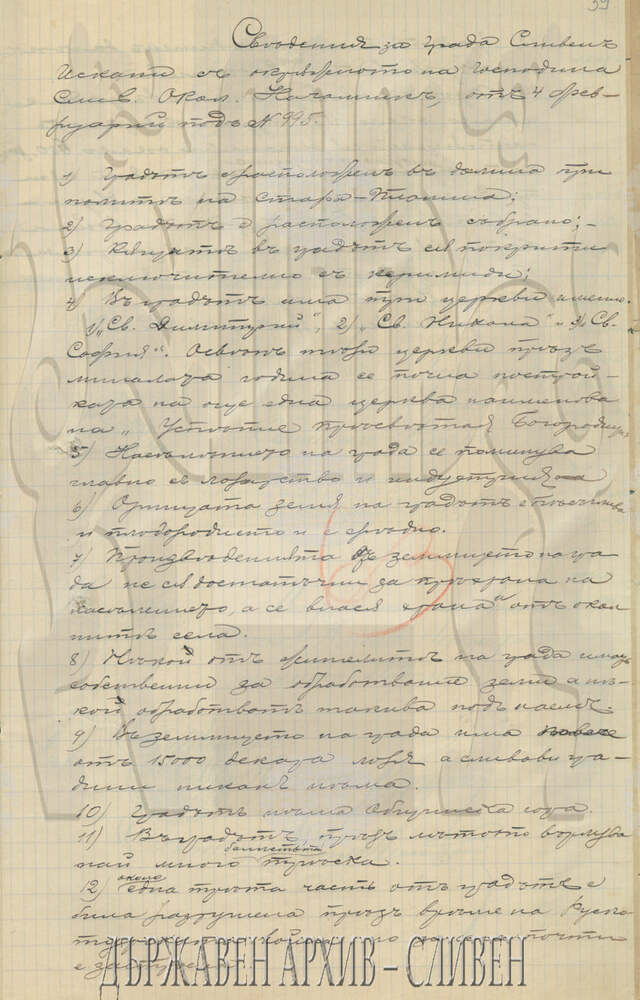 59
Сведения за града Сливенъ
Искани съ окръжното на Господина
Слив. Окол. Началникъ, отъ 4 Фев-
руарий подъ № 995.
1) Градътъ е расположенъ въ долина при
политѣ на Стара-Планина;
2) Градътъ е расположенъ събрано;-
3) Къщитѣ въ градътъ сѫ покрити
исключително съ керемиди;
4) Въ градътъ има три церкви имено:
1) „Св. Димитрий", 2) „Св. Никола" и 3) „Св.
София". Освенъ тѣзи церкви презъ
миналата година се почна построй-
ката на още една церква наименова
на „Успение Пресвятая Богородица"
5) Населението на града се поминува
главно съ лозарство и индустрия
6) Орницата земя на градътъ е
и плодородието и е средно.
7) Произведенията въ землището на гра-
да не сѫ достатъчни за прехрана на
населението, а се внася храна отъ окол
нитѣ села.
8) Нѣкой отъ жителитѣ на града иматъ
собственни за обработвание земи а нѣ-
кой обработватъ такива подъ наемъ.
9) Въ землището на града има повече
отъ 15000 декара лозя а сливови гра-
дини никакъ нѣма.
10) Градътъ нѣма Общинска гора.
11) Въ градътъ, презъ лѣтото върлува
най много треска.
12) около една трета часть отъ градътъ е
била разрушена презъ време на Руско
почти
ДЪРЖАВЕН АРХИВ – СЛИВЕН